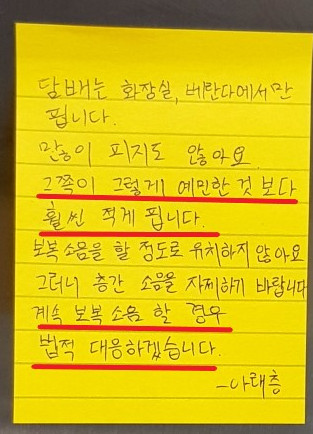 담배는 화장실, 베란다에서만
핍니다.
많이 피지도 않아요
그쪽이 그렇게 예민한 것 보다
훨씬 적게 핍니다.
보복소음을 할 정도로 유치하지 않아요
그러니 층간 소음을 자제하기 바랍니다
계속 보복소음 할 경우
법적 대응하겠습니다.
-아래층